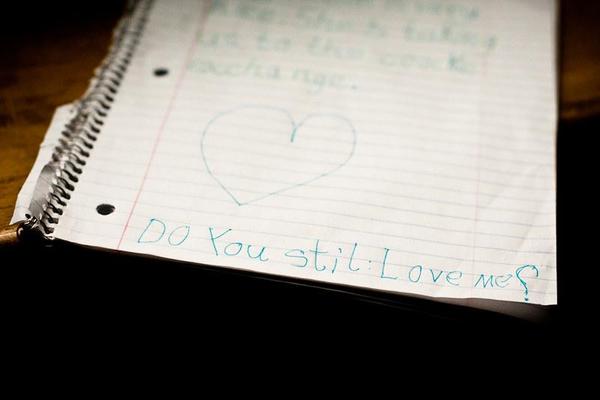 she's taking
us to the
exchange.
DO You stil: Love me?